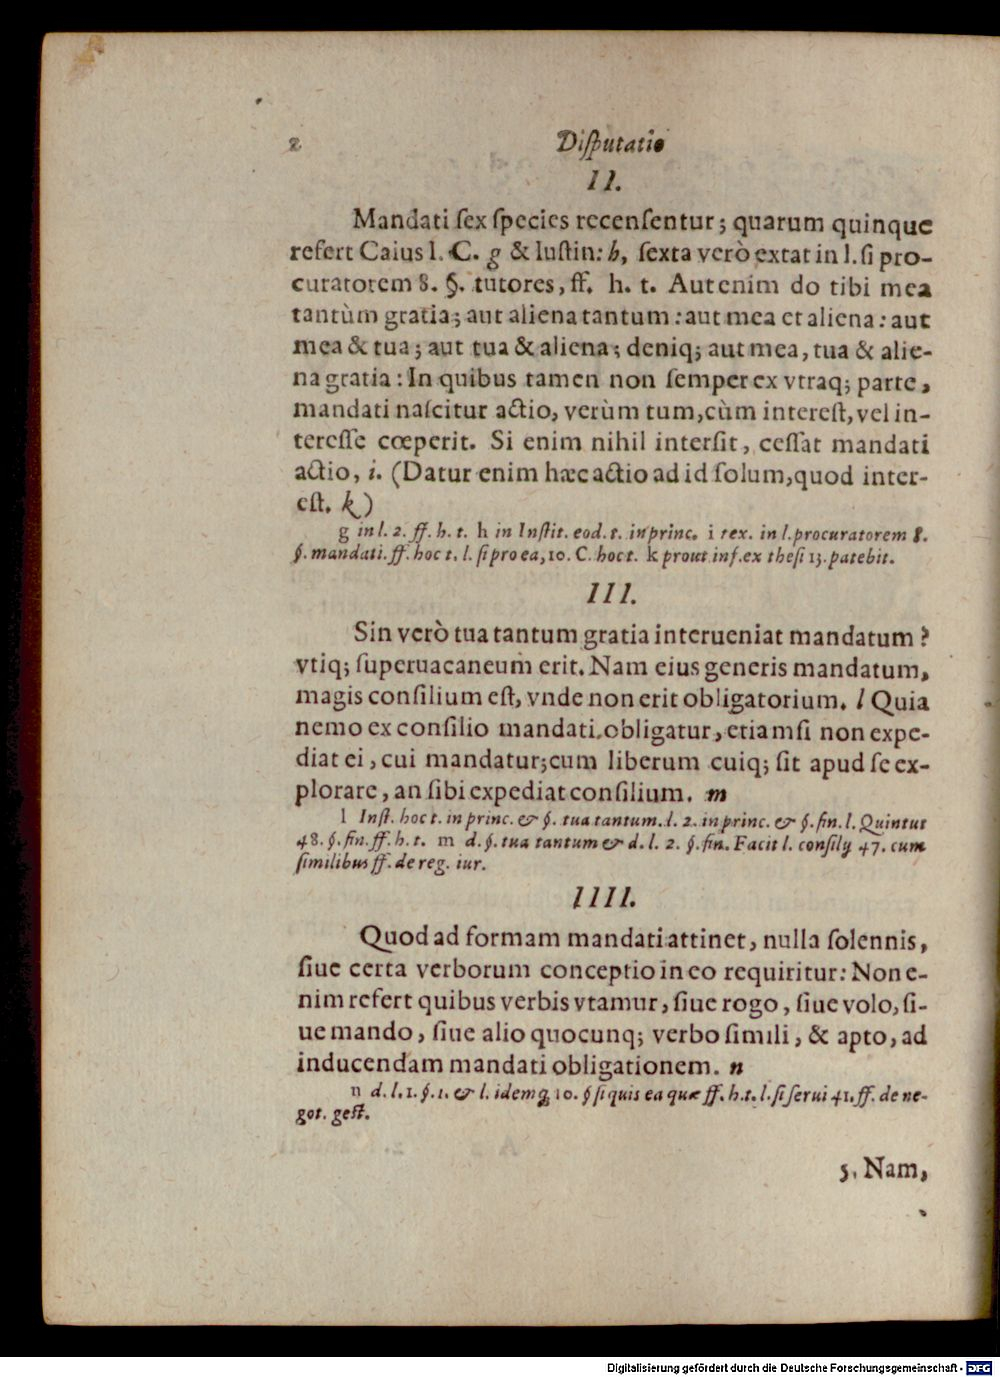 2 Diſputatio
II.
Mandati ſex ſpecies recenſentur; quarum quinque
refert Caius l. C. g & Iuſtin: h, ſexta verò extat in l. ſi pro-
curatorem 8. §. tutores, ff. h. t. Aut enim do tibi mea
tantùm gratia; aut aliena tantum: aut mea et aliena: aut
mea & tua; aut tua & aliena; deniq; aut mea, tua & alie-
na gratia: In quibus tamen non ſemper ex vtraq; parte,
mandati naſcitur actio, verùm tum, cùm intereſt, vel in-
tereſſe cœperit. Si enim nihil interſit, ceſſat mandati
actio, i. (Datur enim hæc actio ad id ſolum, quod inter-
eſt. k)
g in l. 2. ff. h. t. h in Inſtit. eod. t. in princ. i tex. in l. procuratorem 8.
§. mandati. ff. hoc t. l. ſi pro ea, 10. C. hoc t. k prout inf. ex theſi 13. patebit.
III.
Sin verò tua tantum gratia interueniat mandatum?
vtiq; ſuperuacaneum erit. Nam eius generis mandatum,
magis conſilium eſt, vnde non erit obligatorium. l Quia
nemo ex conſilio mandati obligatur, etiamſi non expe-
diat ei, cui mandatur; cum liberum cuiq; ſit apud ſe ex-
plorare, an ſibi expediat conſilium. m
l Inſt. hoc t. in princ. & §. tua tantum. l. 2. in princ. & §. fin. l. Quintus
48. §. fin. ff. h. t. m d. §. tua tantum & d. l. 2. §. fin. Facit l. conſilij 47. cum
ſimilibus ff. de reg. iur.
IIII.
Quod ad formam mandati attinet, nulla ſolennis,
ſiue certa verborum conceptio in eo requiritur: Non e-
nim refert quibus verbis vtamur, ſiue rogo, ſiue volo, ſi-
ue mando, ſiue alio quocunq; verbo ſimili, & apto, ad
inducendam mandati obligationem. n
n d. l. 1. §. 1. & l. idemq; 10. § ſi quis ea quæ ff. h. t. l. ſi ſerui 41. ff. de ne-
got. geſt.
5. Nam,
Digitalisierung gefördert durch die Deutsche Forschungsgemeinschaft - DFG